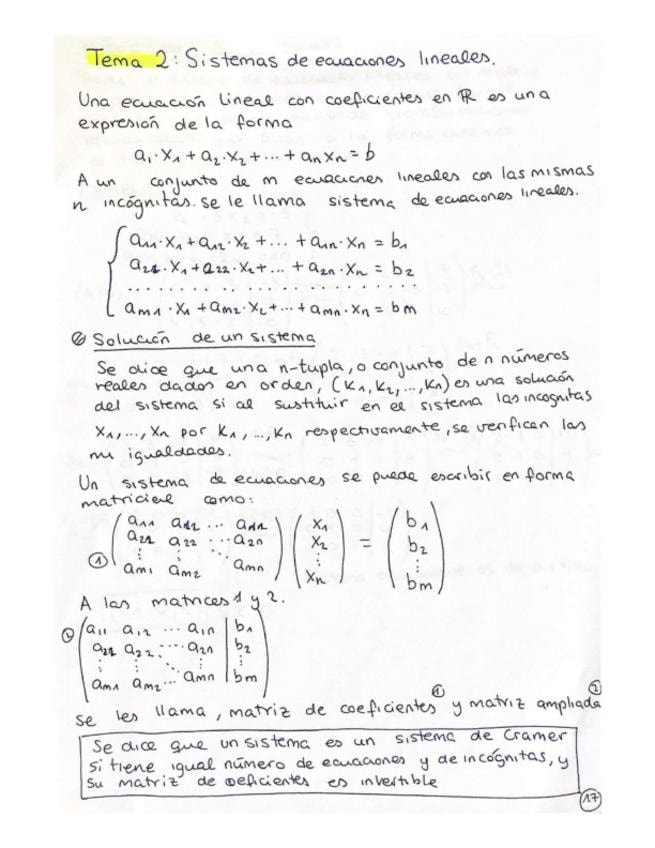 Tema 2: Sistemas de ecuaciones lineales.
Una ecuación lineal con coeficientes en ℝ es una
expresión de la forma
a₁·x₁ + a₂·x₂ + ... + aₙxₙ = b
A un conjunto de m ecuaciones lineales con las mismas
n incógnitas. se le llama sistema de ecuaciones lineales.
a₁₁·x₁ + a₁₂·x₂ + ... + a₁ₙ·xₙ = b₁
a₂₁·x₁ + a₂₂·x₂ + ... + a₂ₙ·xₙ = b₂
. . . . . . . . . . . . . . . . . . . .
aₘ₁·x₁ + aₘ₂·x₂ + ... + aₘₙ·xₙ = bₘ
Solución de un sistema
Se dice que una n-tupla, o conjunto de n números
reales dados en orden, (k₁, k₂, ..., kₙ) es una solución
del sistema si al sustituir en el sistema las incognitas
x₁, ..., xₙ por k₁, ..., kₙ respectivamente, se verifican las
m igualdades.
Un sistema de ecuaciones se puede escribir en forma
matricial como:
① (a₁₁ a₁₂ ... a₁ₙ) (x₁) = (b₁)
a₂₁ a₂₂ ... a₂ₙ x₂ b₂
⋮ ⋮ ⋱ ⋮ ⋮
aₘ₁ aₘ₂ aₘₙ xₙ bₘ
A las matrices 1 y 2.
② (a₁₁ a₁₂ ... a₁ₙ | b₁)
a₂₁ a₂₂ ... a₂ₙ | b₂
⋮ ⋮ ⋱ ⋮ | ⋮
aₘ₁ aₘ₂ ... aₘₙ | bₘ
se les llama, matriz de coeficientes ① y matriz ampliada ②
Se dice que un sistema es un sistema de Cramer
si tiene igual número de ecuaciones y de incógnitas, y
su matriz de coeficientes es invertible
17